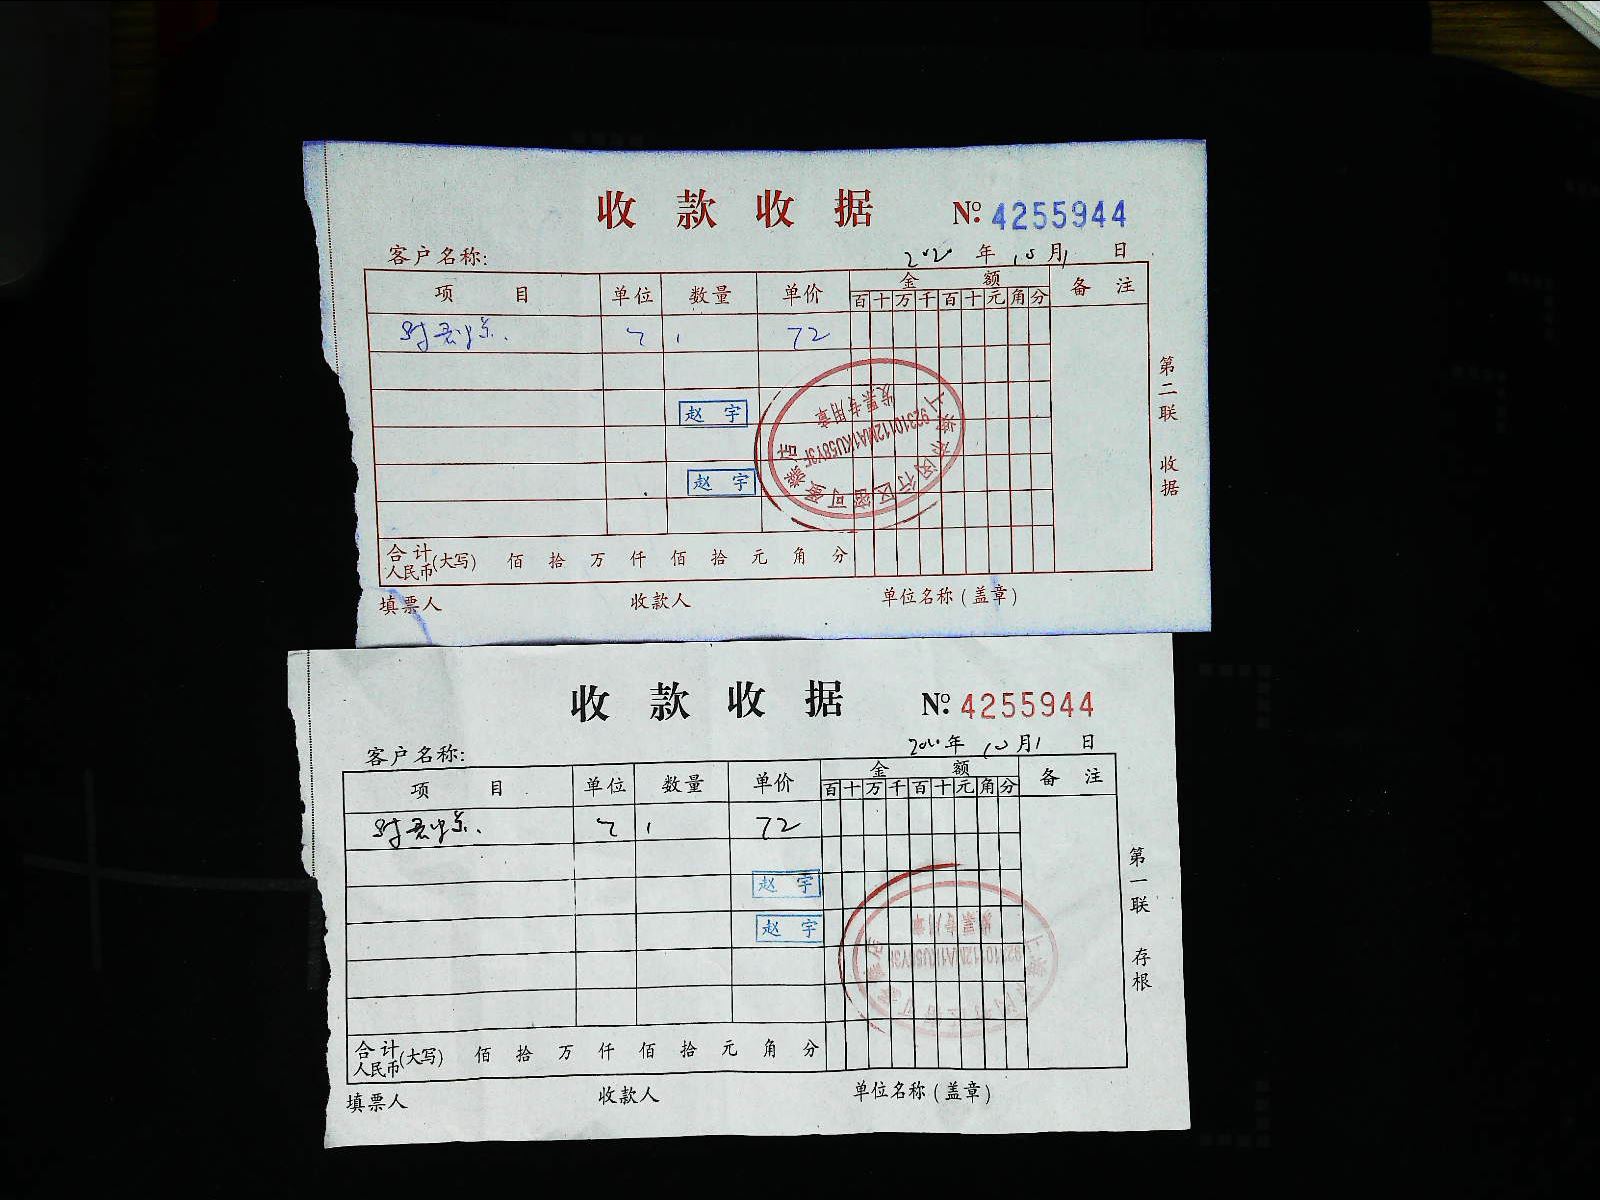 收款收据 №: 4255944
客户名称: 2020 年 10 月 1 日
项目 单位 数量 单价 金额 备注
百 十 万 千 百 十 元 角 分
1 72
赵宇
赵宇
上海市闵行区
发票专用章
第二联 收据
合计人民币(大写) 佰 拾 万 仟 佰 拾 元 角 分
填票人 收款人 单位名称(盖章)
收款收据 №: 4255944
客户名称: 年 10 月 1 日
项目 单位 数量 单价 金额 备注
百 十 万 千 百 十 元 角 分
1 72
赵宇
赵宇
发票专用章
第一联 存根
合计人民币(大写) 佰 拾 万 仟 佰 拾 元 角 分
填票人 收款人 单位名称(盖章)